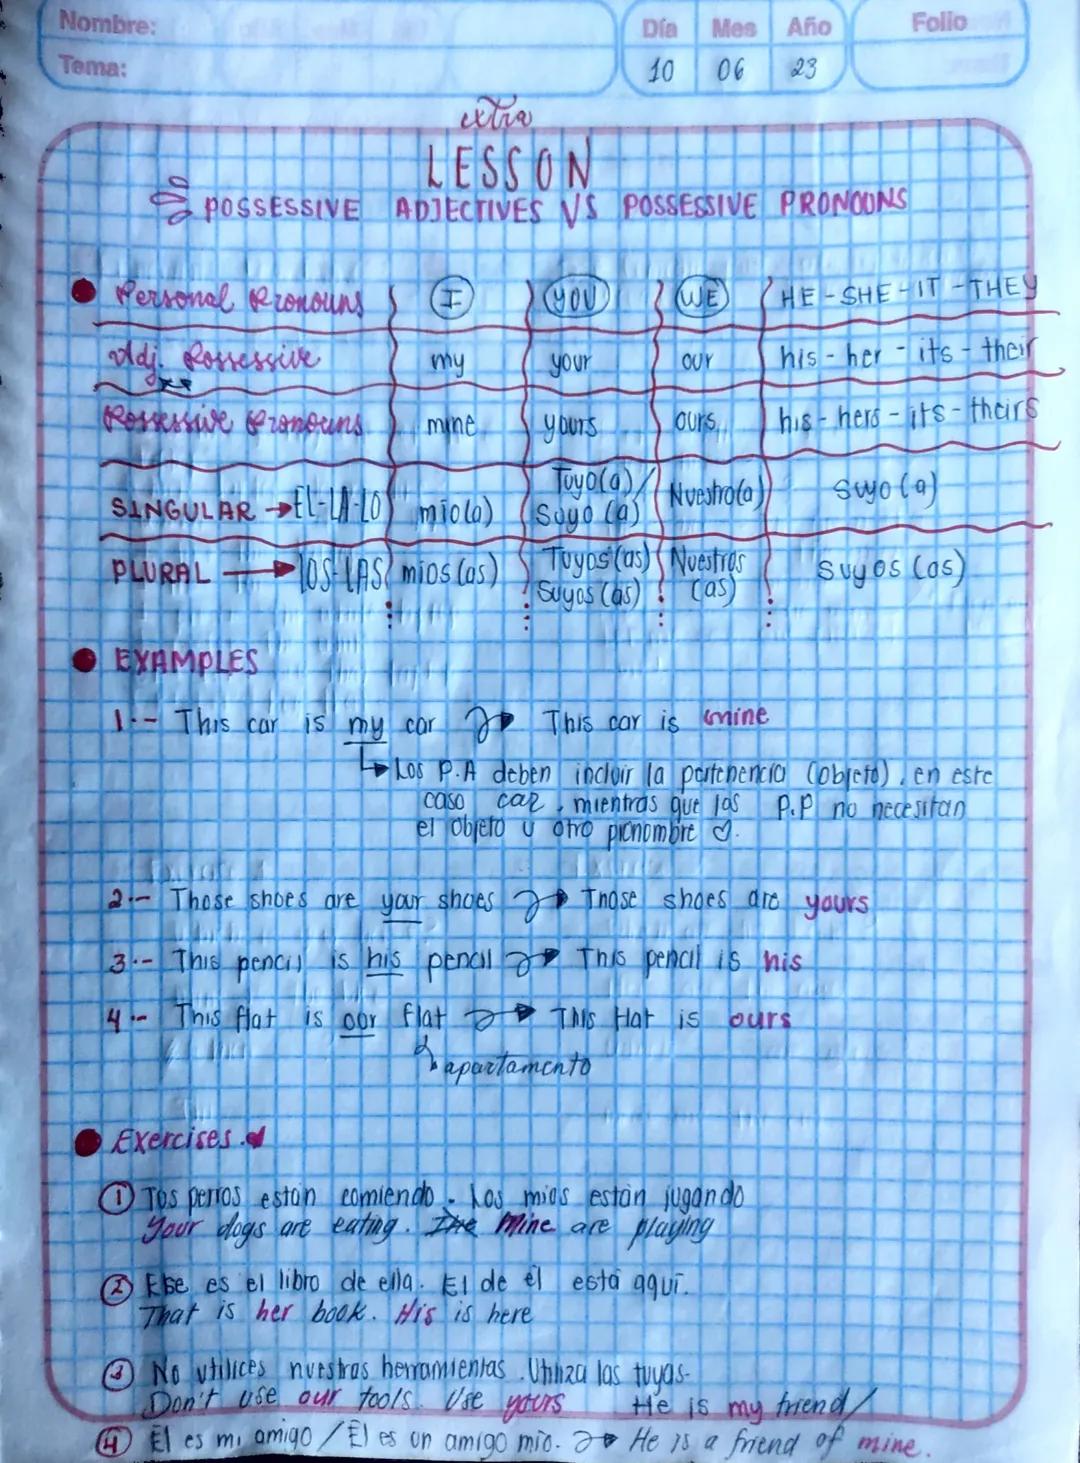 Nombre:
Día Mes Año
Folio
Tema:
10 06 23
extra
LESSON
POSSESSIVE ADJECTIVES VS POSSESSIVE PRONOUNS
Personal Pronouns I YOU WE HE - SHE - IT - THEY
Adj. Possessive my your our his - her - its - their
Possessive Pronouns mine yours ours his - hers - its - theirs
SINGULAR → EL-LA-LO mio(a) Tuyo(a)/ Suyo (a) Nuestro(a) suyo (a)
PLURAL → LOS-LAS mios (as) Tuyos (as) Suyos (as) Nuestros (as) suyos (as)
EXAMPLES
1.- This car is my car → This car is mine
Los P.A deben incluir la pertenencia (objeto), en este
caso car, mientras que los P.P no necesitan
el objeto u otro pronombre ♡.
2.- Those shoes are your shoes → Those shoes are yours
3.- This pencil is his pencil → This pencil is his
4.- This flat is our flat → This flat is ours
apartamento
Exercises.
1 Tus perros están comiendo. Los mios están jugando
Your dogs are eating. The Mine are playing
2 Ese es el libro de ella. El de él está aquí.
That is her book. His is here
3 No utilices nuestras herramientas. Utiliza las tuyas-
Don't use our tools. Use yours
He is my friend/
4 Él es mi amigo / Él es un amigo mio. → He is a friend of mine.